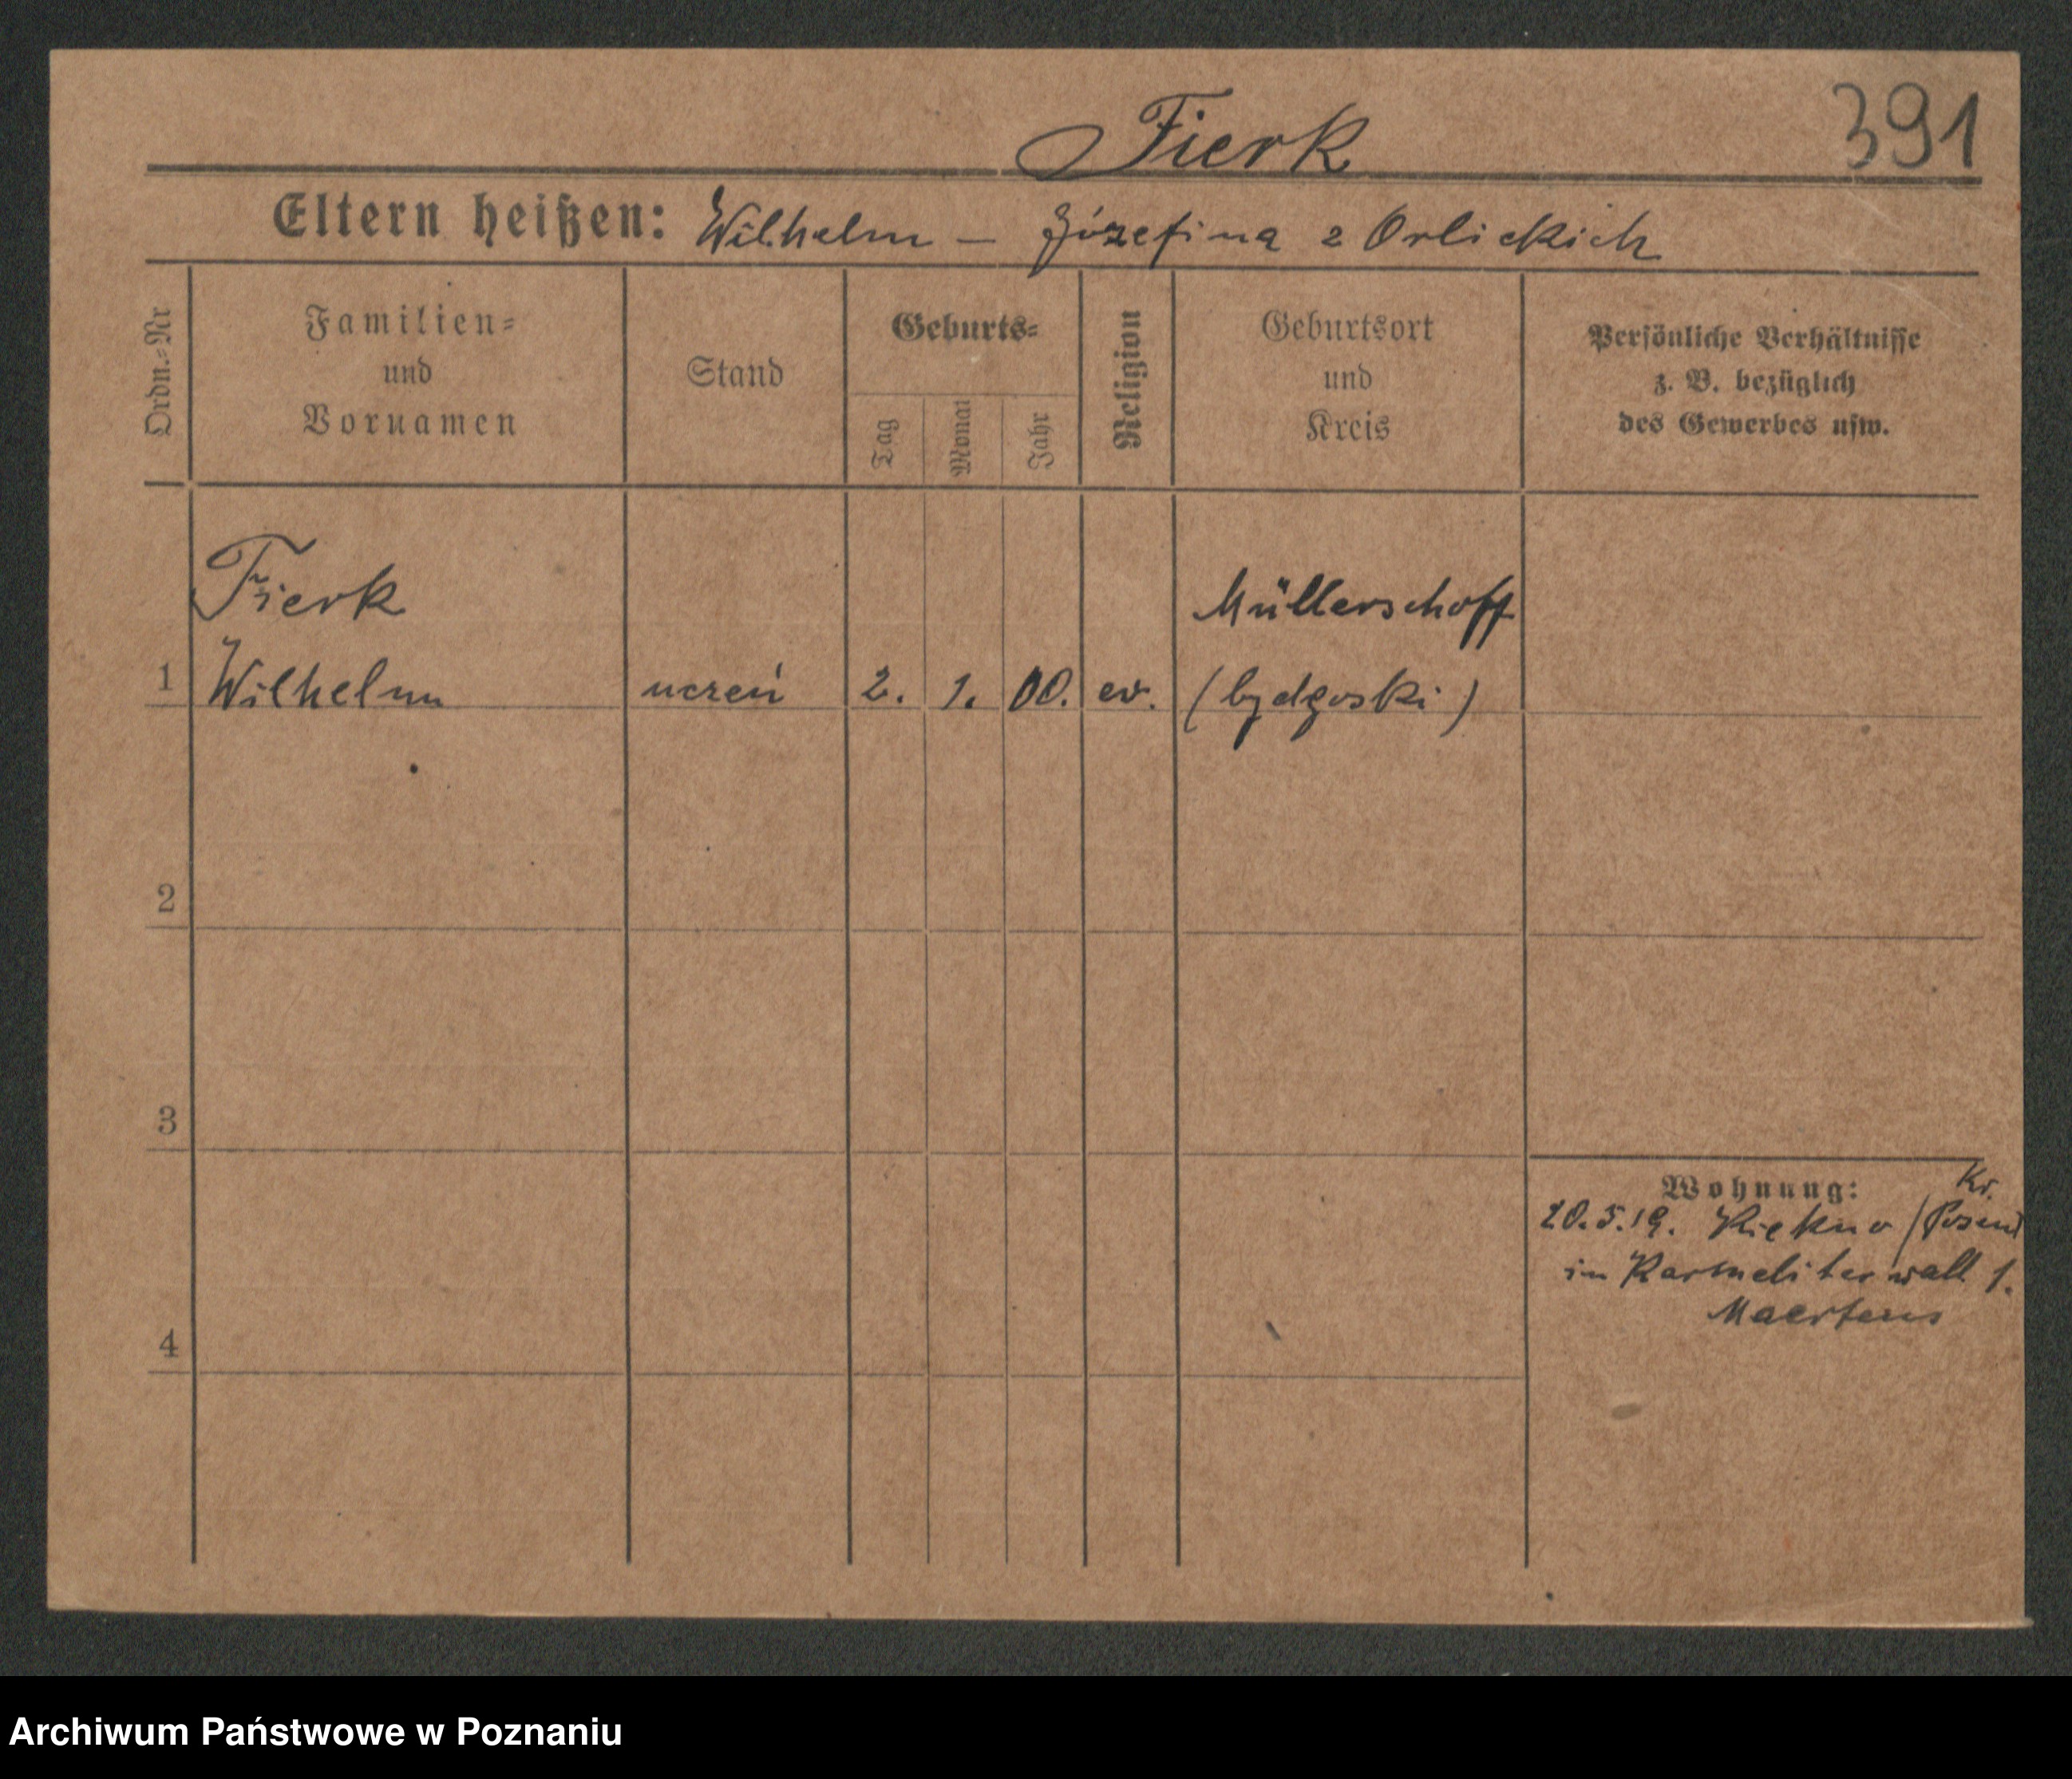 391
Fierk
Eltern heißen: Wilhelm – Józefina z Orlickich
Ordn.=Nr
Familien=
und
Vornamen
Stand
Geburts=
Tag
Monat
Jahr
Religion
Geburtsort
und
Kreis
Persönliche Verhältnisse
z. B. bezüglich
des Gewerbes usw.
Fierk
Müllerschoff
1 Wilhelm uczeń 2. 1. 00. ev. (bydgoski)
2
3
4
Wohnung:
Kr.
20.5.19. Kiekno (Posen)
in Karmeliterwall 1.
Maertens
Archiwum Państwowe w Poznaniu